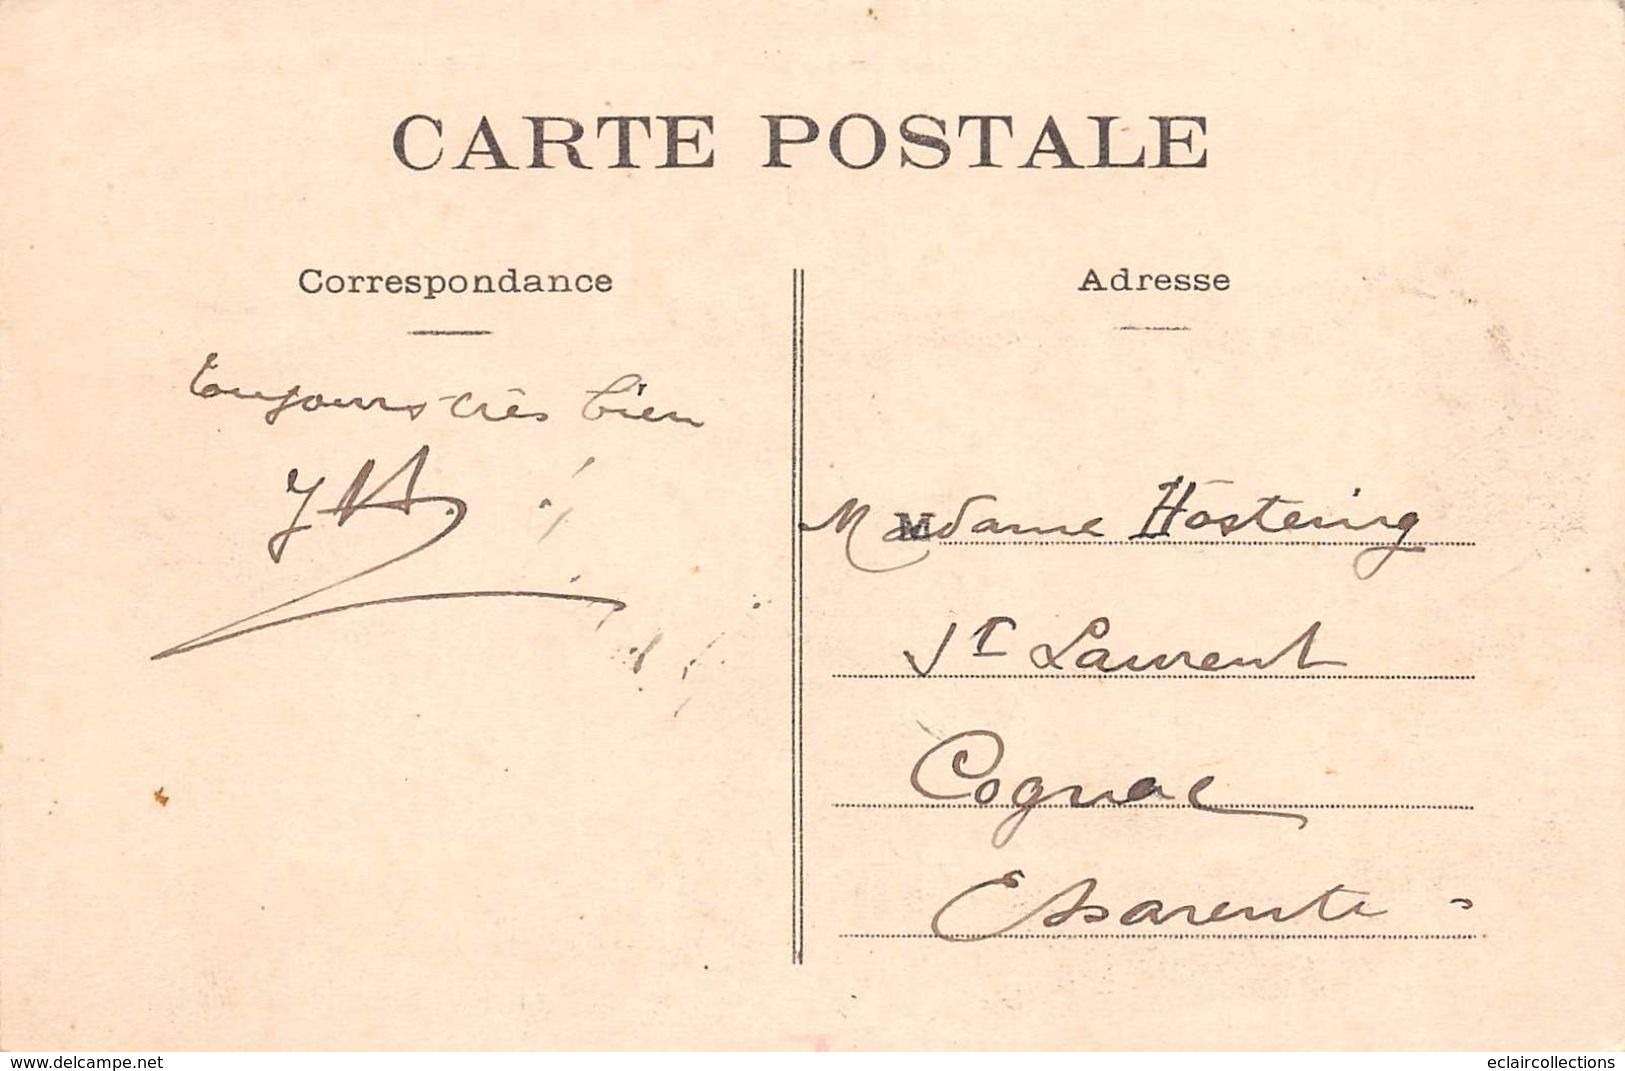 CARTE POSTALE
Correspondance
Adresse
toujours très bien
Madame Hosteing
St Laurent
Cognac
Charente
delcampe.net
eclaircollections